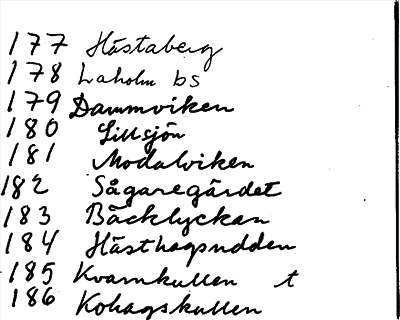 177 Hästaberg
178 Laholm bs
179 Dammviken
180 Lillsjön
181 Modalviken
182 Sågaregärdet
183 Bäcklyckan
184 Hästhagsudden
185 Kvarnkullen t
186 Kohagskullen